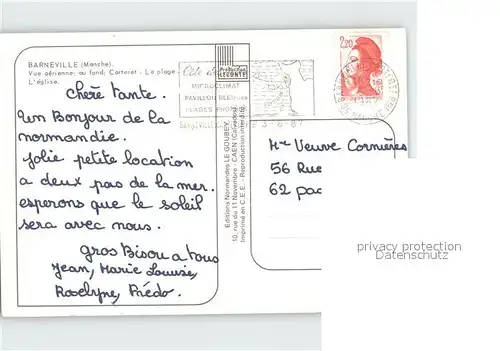 BARNEVILLE (Manche).
Vue aérienne; au fond, Carteret - La plage -
L'église.
Chère tante.
Un Bonjour de la
normandie.
Jolie petite location
a deux pas de la mer.
esperons que le soleil
sera avec nous.
Gros Bisou a tous
Jean, Marie Louise,
Roselyne, Frédo.
Production
LECONTE
MICROCLIMAT
PAVILLON BLEU
PLAGES
3-8-87
Editions Normandes LE GOUBEY
10, rue du 11 Novembre - CAEN (Calvados)
Imprimé en C.E.E. - Reproduction interdite
2,20
Mme Veuve Cornières
56 Rue
62 pac
privacy protection
Datenschutz